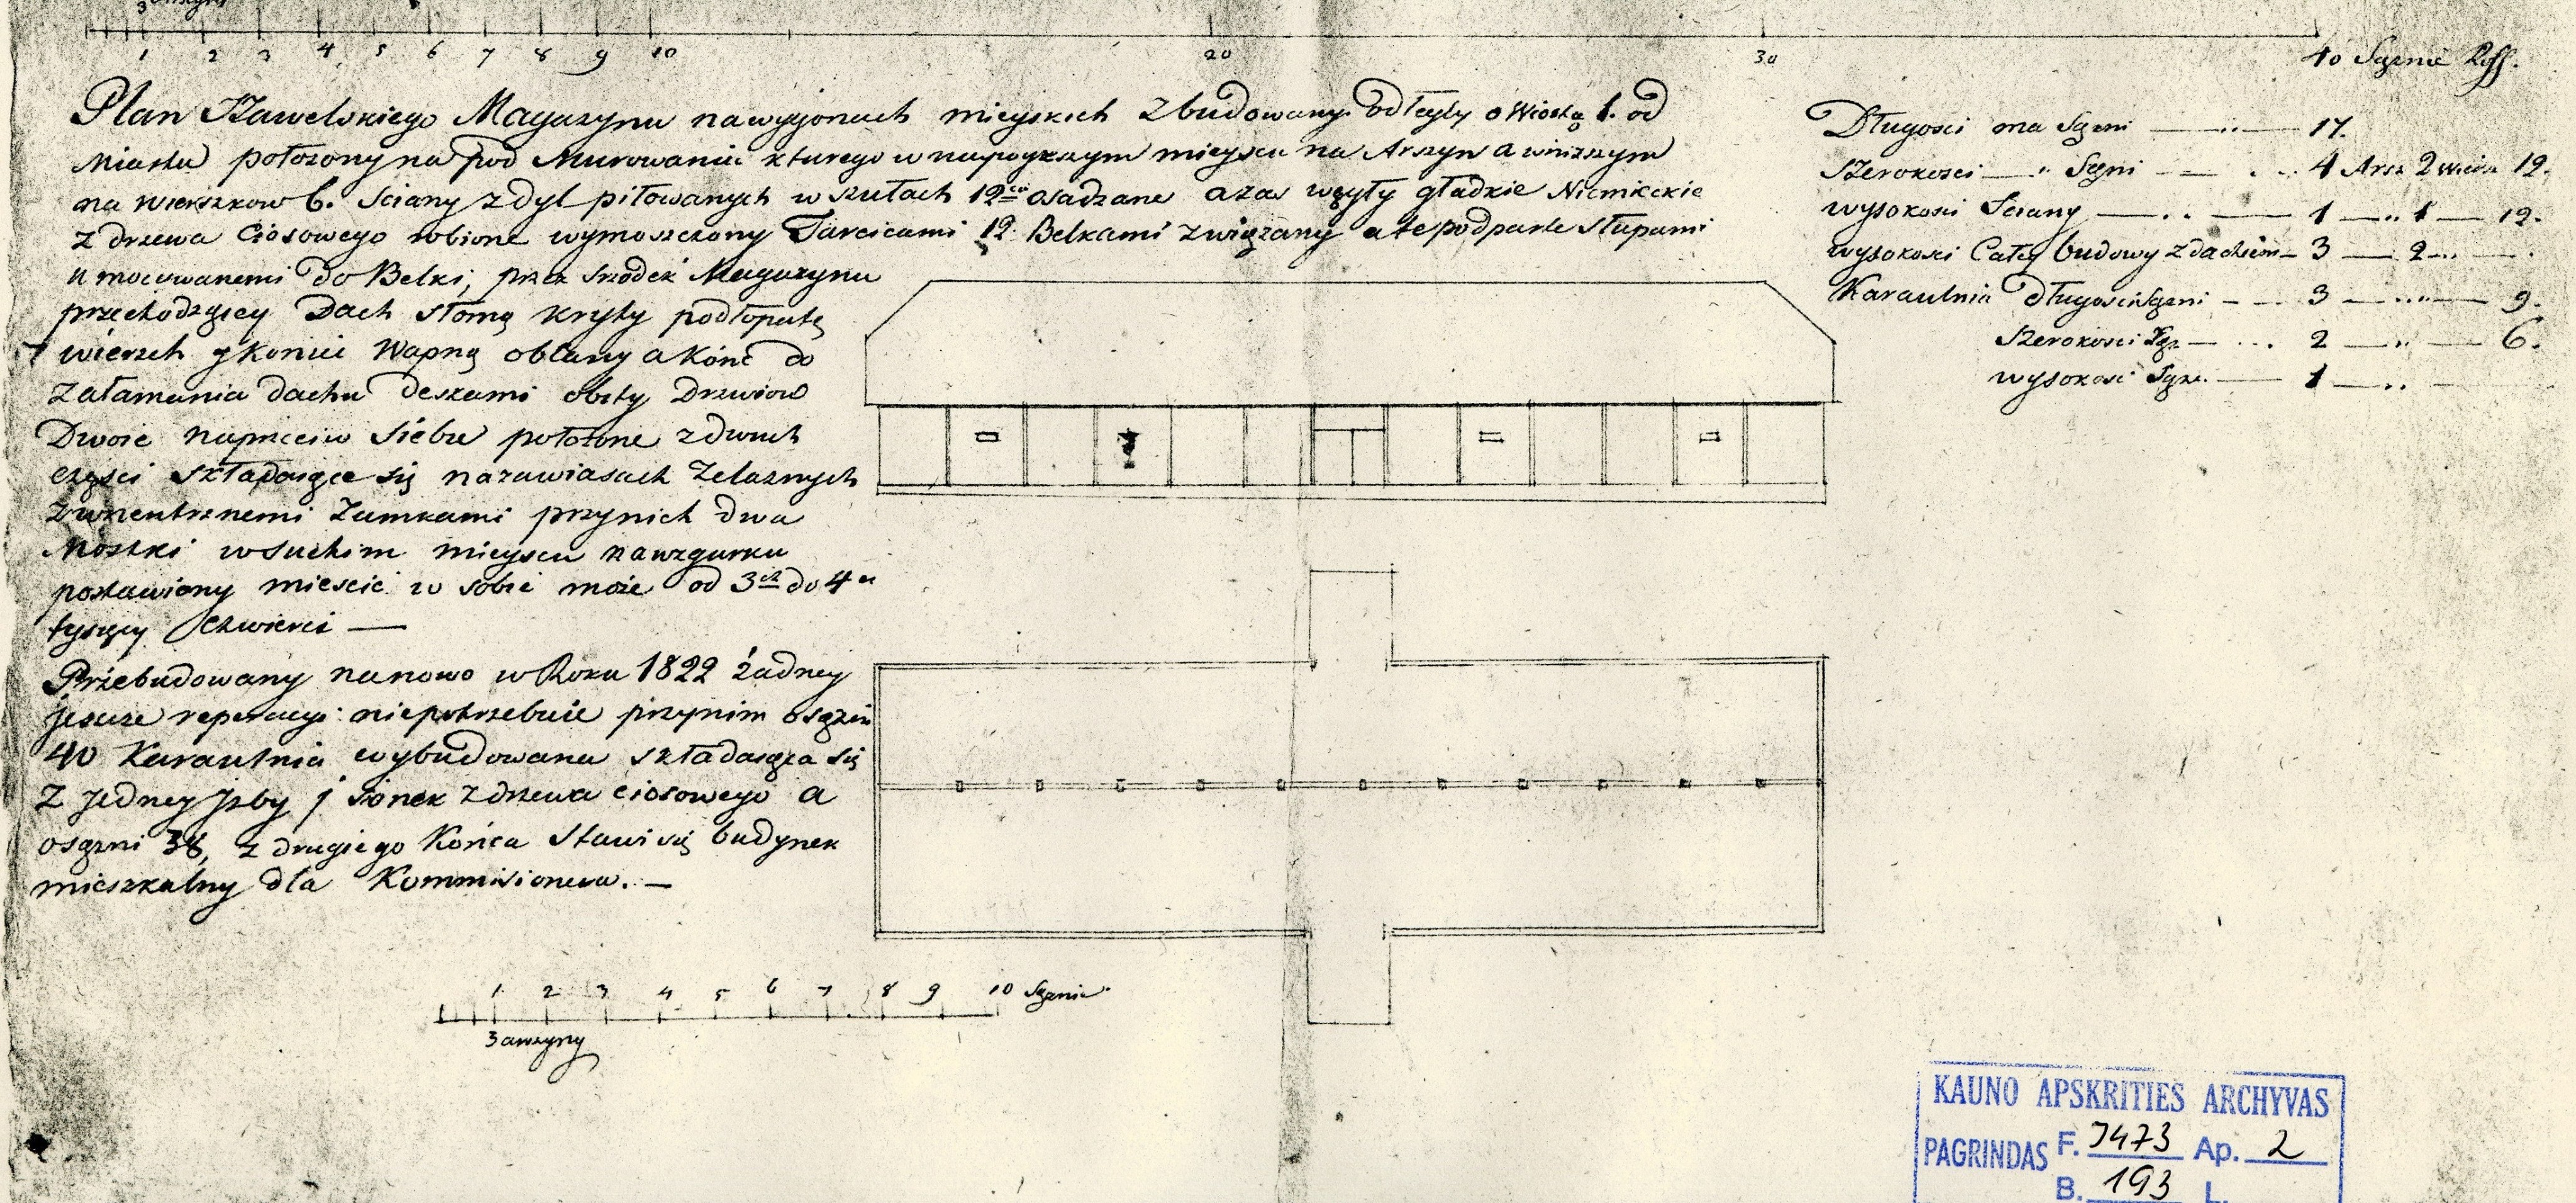 1 2 3 4 5 6 7 8 9 10 20 30 40 Sążnie Ross.
Plan Szawelskiego Magazynu na wygonach mieyskich zbudowany odległy o Wiorstę 1. od
Miasta położony na pod Murowaniu kturego w naywyższym mieyscu na Arszyn a w niższym
na wierszkow 6. Sciany z dyl piłowanych w szułach 12ciu osadzane a zaś węgły gładkie Niemieckie
z drzewa Ciosowego robione wymoszczony Tarcicami 12. Belkami związany a te podparte Słupami
umocowanemi do Belki, przez srzodek Magazynu
przechodzącey Dach słomą kryty pod łopatę
wierzch y konice Wapną oblany a Konc do
załamania dachu deskami obity Drzwiow
Dwoie naprzeciw siebie położone z dwuch
częsci składaiące się na zawiasach żelaznych
z wnentrznemi Zamkami przy nich dwa
Mostki w suchim mieyscu na wzgurku
postawiony miescić w sobie może od 3ch do 4ch
tysięcy Czwierci —
Przebudowany nanowo w Roku 1822 żadney
jeszcze reperacyi niepotrzebuie przy nim o sążni
40 Karaulnia wybudowana składaiąca się
z jedney Izby j sionek z drzewa ciosowego a
o sążni 38, z drugiego Końca Stawi się budynek
mieszkalny dla Kommisionera. —
Długosci ma Sążni — " — 17.
Szerokosci — " Sążni — 4 Arsz 2 Wiersz 12.
wysokosci Sciany — " — 1 — " 1 — 12.
wysokosci Całey budowy z dachem — 3 — 2 — "
Karaulnia Długosci Sążni — 3 — " — 9.
Szerokosci Sąż — 2 — " — 6.
wysokosci Sążn. — 1 — "
1 2 3 4 5 6 7 8 9 10 Sążnie
3 arszyny
KAUNO APSKRITIES ARCHYVAS
PAGRINDAS F. J473 Ap. 2
B. 193 L.